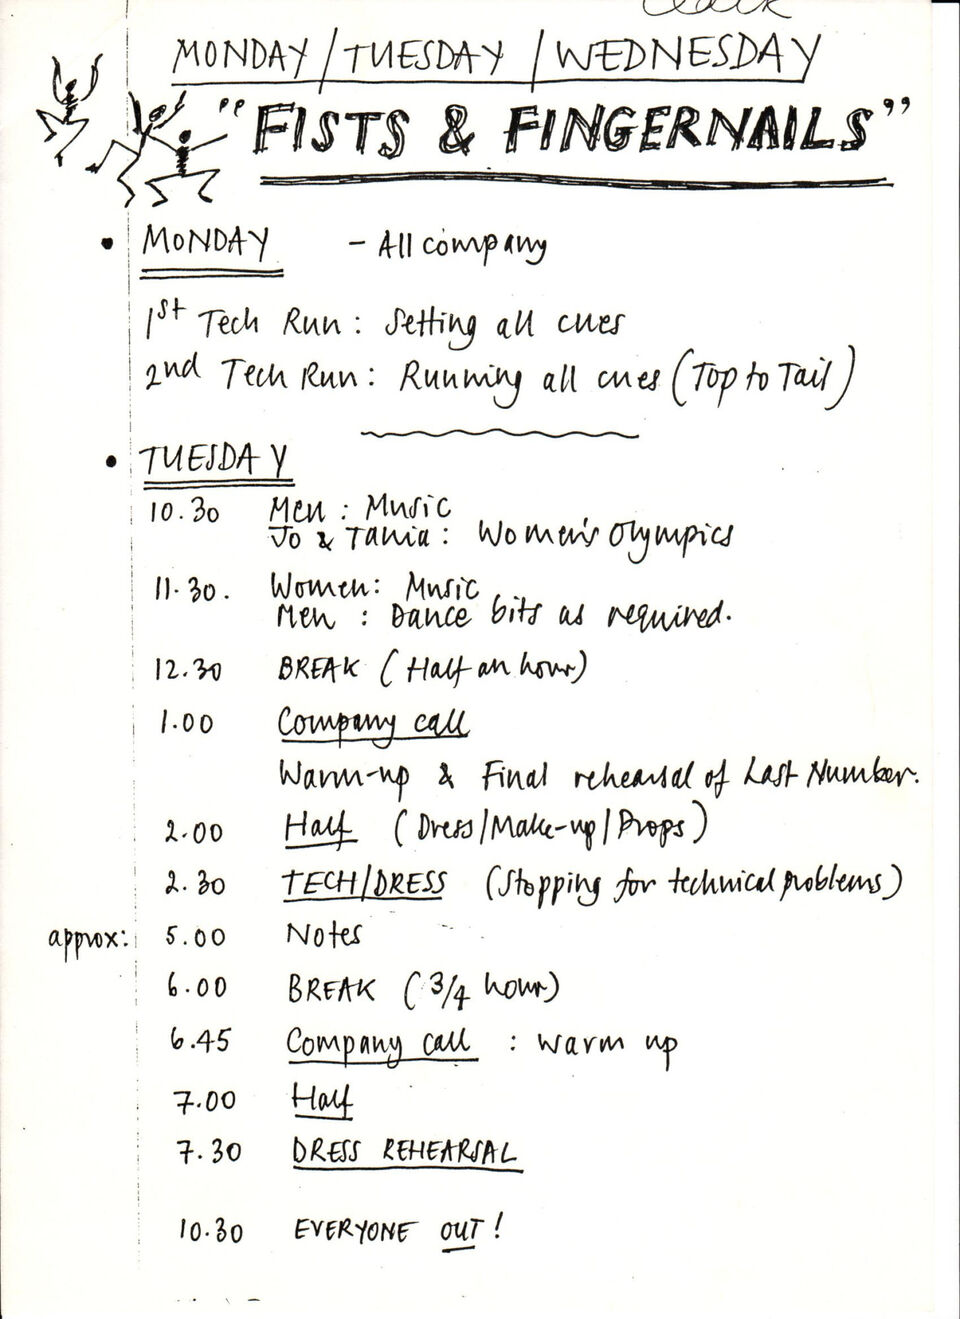 MONDAY / TUESDAY / WEDNESDAY
"FISTS & FINGERNAILS"
• MONDAY - All company
1st Tech Run: Setting all cues
2nd Tech Run: Running all cues (Top to Tail)
• TUESDAY
10.30 Men: Music
Jo & Tania: Women's Olympics
11.30. Women: Music
Men: Dance bits as required.
12.30 BREAK (Half an hour)
1.00 Company call
Warm-up & Final rehearsal of Last Number.
2.00 Half (Dress/Make-up/Props)
2.30 TECH/DRESS (Stopping for technical problems)
approx: 5.00 Notes
6.00 BREAK (3/4 hour)
6.45 Company call: warm up
7.00 Half
7.30 DRESS REHEARSAL
10.30 EVERYONE OUT!